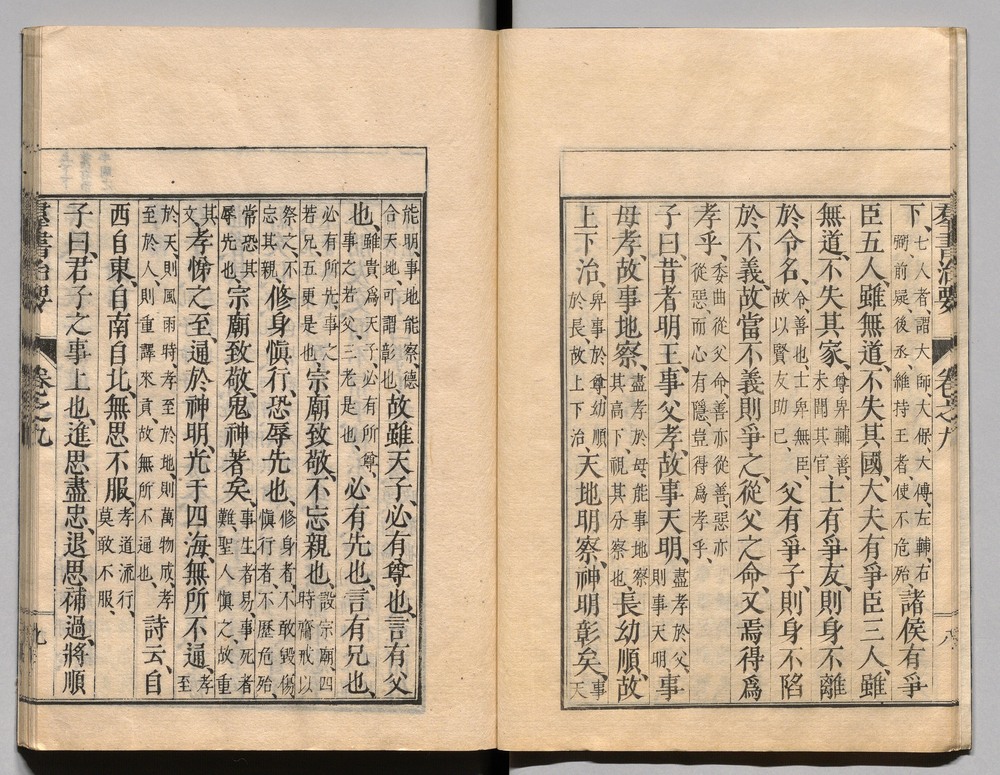 羣書治要 卷之九 八
下、七人者、謂大師、大保、大傅、左輔、右弼、前疑、後丞、維持王者、使不危殆、諸侯有爭
臣五人、雖無道、不失其國、大夫有爭臣三人、雖
無道、不失其家、尊卑輔善、未聞其官、士有爭友、則身不離
於令名、令善也、士卑無臣、故以賢友助己、父有爭子、則身不陷
於不義、故當不義則爭之、從父之命、又焉得爲
孝乎、委曲從父命、善亦從善、惡亦從惡、而心有隱、豈得爲孝乎、
子曰、昔者明王、事父孝、故事天明、盡孝於父、則事天明、事
母孝、故事地察、盡孝於母、能事地察其高下、視其分察也、長幼順、故
上下治、卑事於尊、幼順於長、故上下治、天地明察、神明彰矣、事天
能明、事地能察、德合天地、可謂彰也、故雖天子、必有尊也、言有父
也、雖貴爲天子、必有所尊、事之若父、三老是也、必有先也、言有兄也、
必有所先、事之若兄、五更是也、宗廟致敬、不忘親也、設宗廟、四時齋戒以
祭之、不忘其親、修身愼行、恐辱先也、修身者、不敢毀傷、愼行者、不歷危殆、
常恐其辱先也、宗廟致敬、鬼神著矣、事生者易、事死者難、聖人愼之、故重
其文、孝悌之至、通於神明、光于四海、無所不通、孝至
於天、則風雨時、孝至於地、則萬物成、孝至於人、則重譯來貢、故無所不通也、詩云、自
西自東、自南自北、無思不服、孝道流行、莫敢不服、
子曰、君子之事上也、進思盡忠、退思補過、將順
羣書治要 卷之九 九